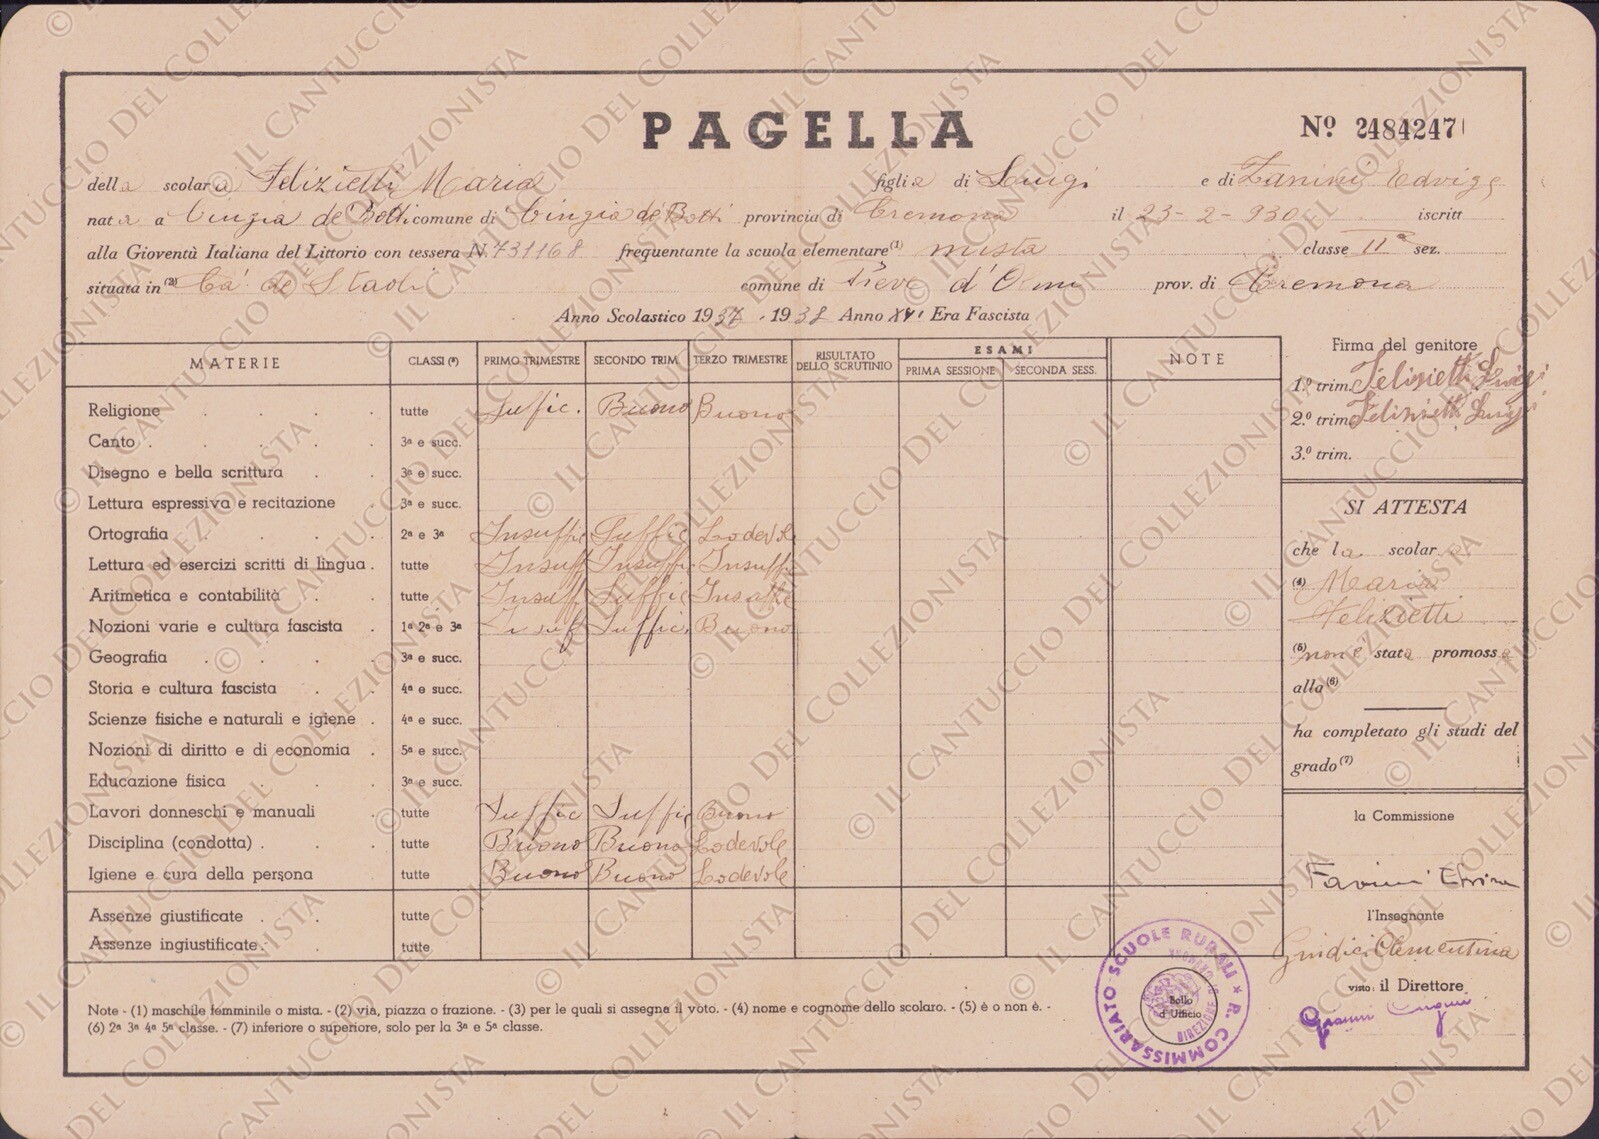 PAGELLA
Nº 2484247
della scolara Felizietti Maria figlia di Luigi e di Zanini Edvige
nata a Cingia de' Botti comune di Cingia de' Botti provincia di Cremona il 23-2-930 iscritt
alla Gioventù Italiana del Littorio con tessera N. 731168 frequentante la scuola elementare (1) mista classe IIª sez.
situata in (2) Ca' de' Staoli comune di Pieve d'Olmi prov. di Cremona
Anno Scolastico 1937 - 1938 Anno XVI Era Fascista
MATERIE CLASSI (3) PRIMO TRIMESTRE SECONDO TRIM. TERZO TRIMESTRE RISULTATO DELLO SCRUTINIO ESAMI PRIMA SESSIONE SECONDA SESS. NOTE
Religione tutte Suffic. Buono Buono
Canto 3ª e succ.
Disegno e bella scrittura 3ª e succ.
Lettura espressiva e recitazione 3ª e succ.
Ortografia 2ª e 3ª Insuffic Suffic Lodevole
Lettura ed esercizi scritti di lingua tutte Insuff Insuffi. Insuff.
Aritmetica e contabilità tutte Insuff Suffic
Nozioni varie e cultura fascista 1ª 2ª e 3ª Insuf Suffic. Buono
Geografia 3ª e succ.
Storia e cultura fascista 4ª e succ.
Scienze fisiche e naturali e igiene 4ª e succ.
Nozioni di diritto e di economia 5ª e succ.
Educazione fisica 3ª e succ.
Lavori donneschi e manuali tutte Suffic Suffic Buono
Disciplina (condotta) tutte Buono Buono Lodevole
Igiene e cura della persona tutte Buono Buono Lodevole
Assenze giustificate tutte
Assenze ingiustificate tutte
Firma del genitore
1.º trim. Felizietti Luigi
2.º trim. Felizietti Luigi
3.º trim.
SI ATTESTA
che la scolara
(4) Maria
Felizietti
(5) non è stata promossa
alla (6)
ha completato gli studi del
grado (7)
la Commissione
l'Insegnante
Giudici Clementina
visto: il Direttore
Note - (1) maschile femminile o mista. - (2) via, piazza o frazione. - (3) per le quali si assegna il voto. - (4) nome e cognome dello scolaro. - (5) è o non è. -
(6) 2ª 3ª 4ª 5ª classe. - (7) inferiore o superiore, solo per la 3ª e 5ª classe.
R. COMMISSARIATO SCUOLE RURALI
DIREZIONE DI CREMONA
Bollo
d'Ufficio
© IL CANTUCCIO DEL COLLEZIONISTA